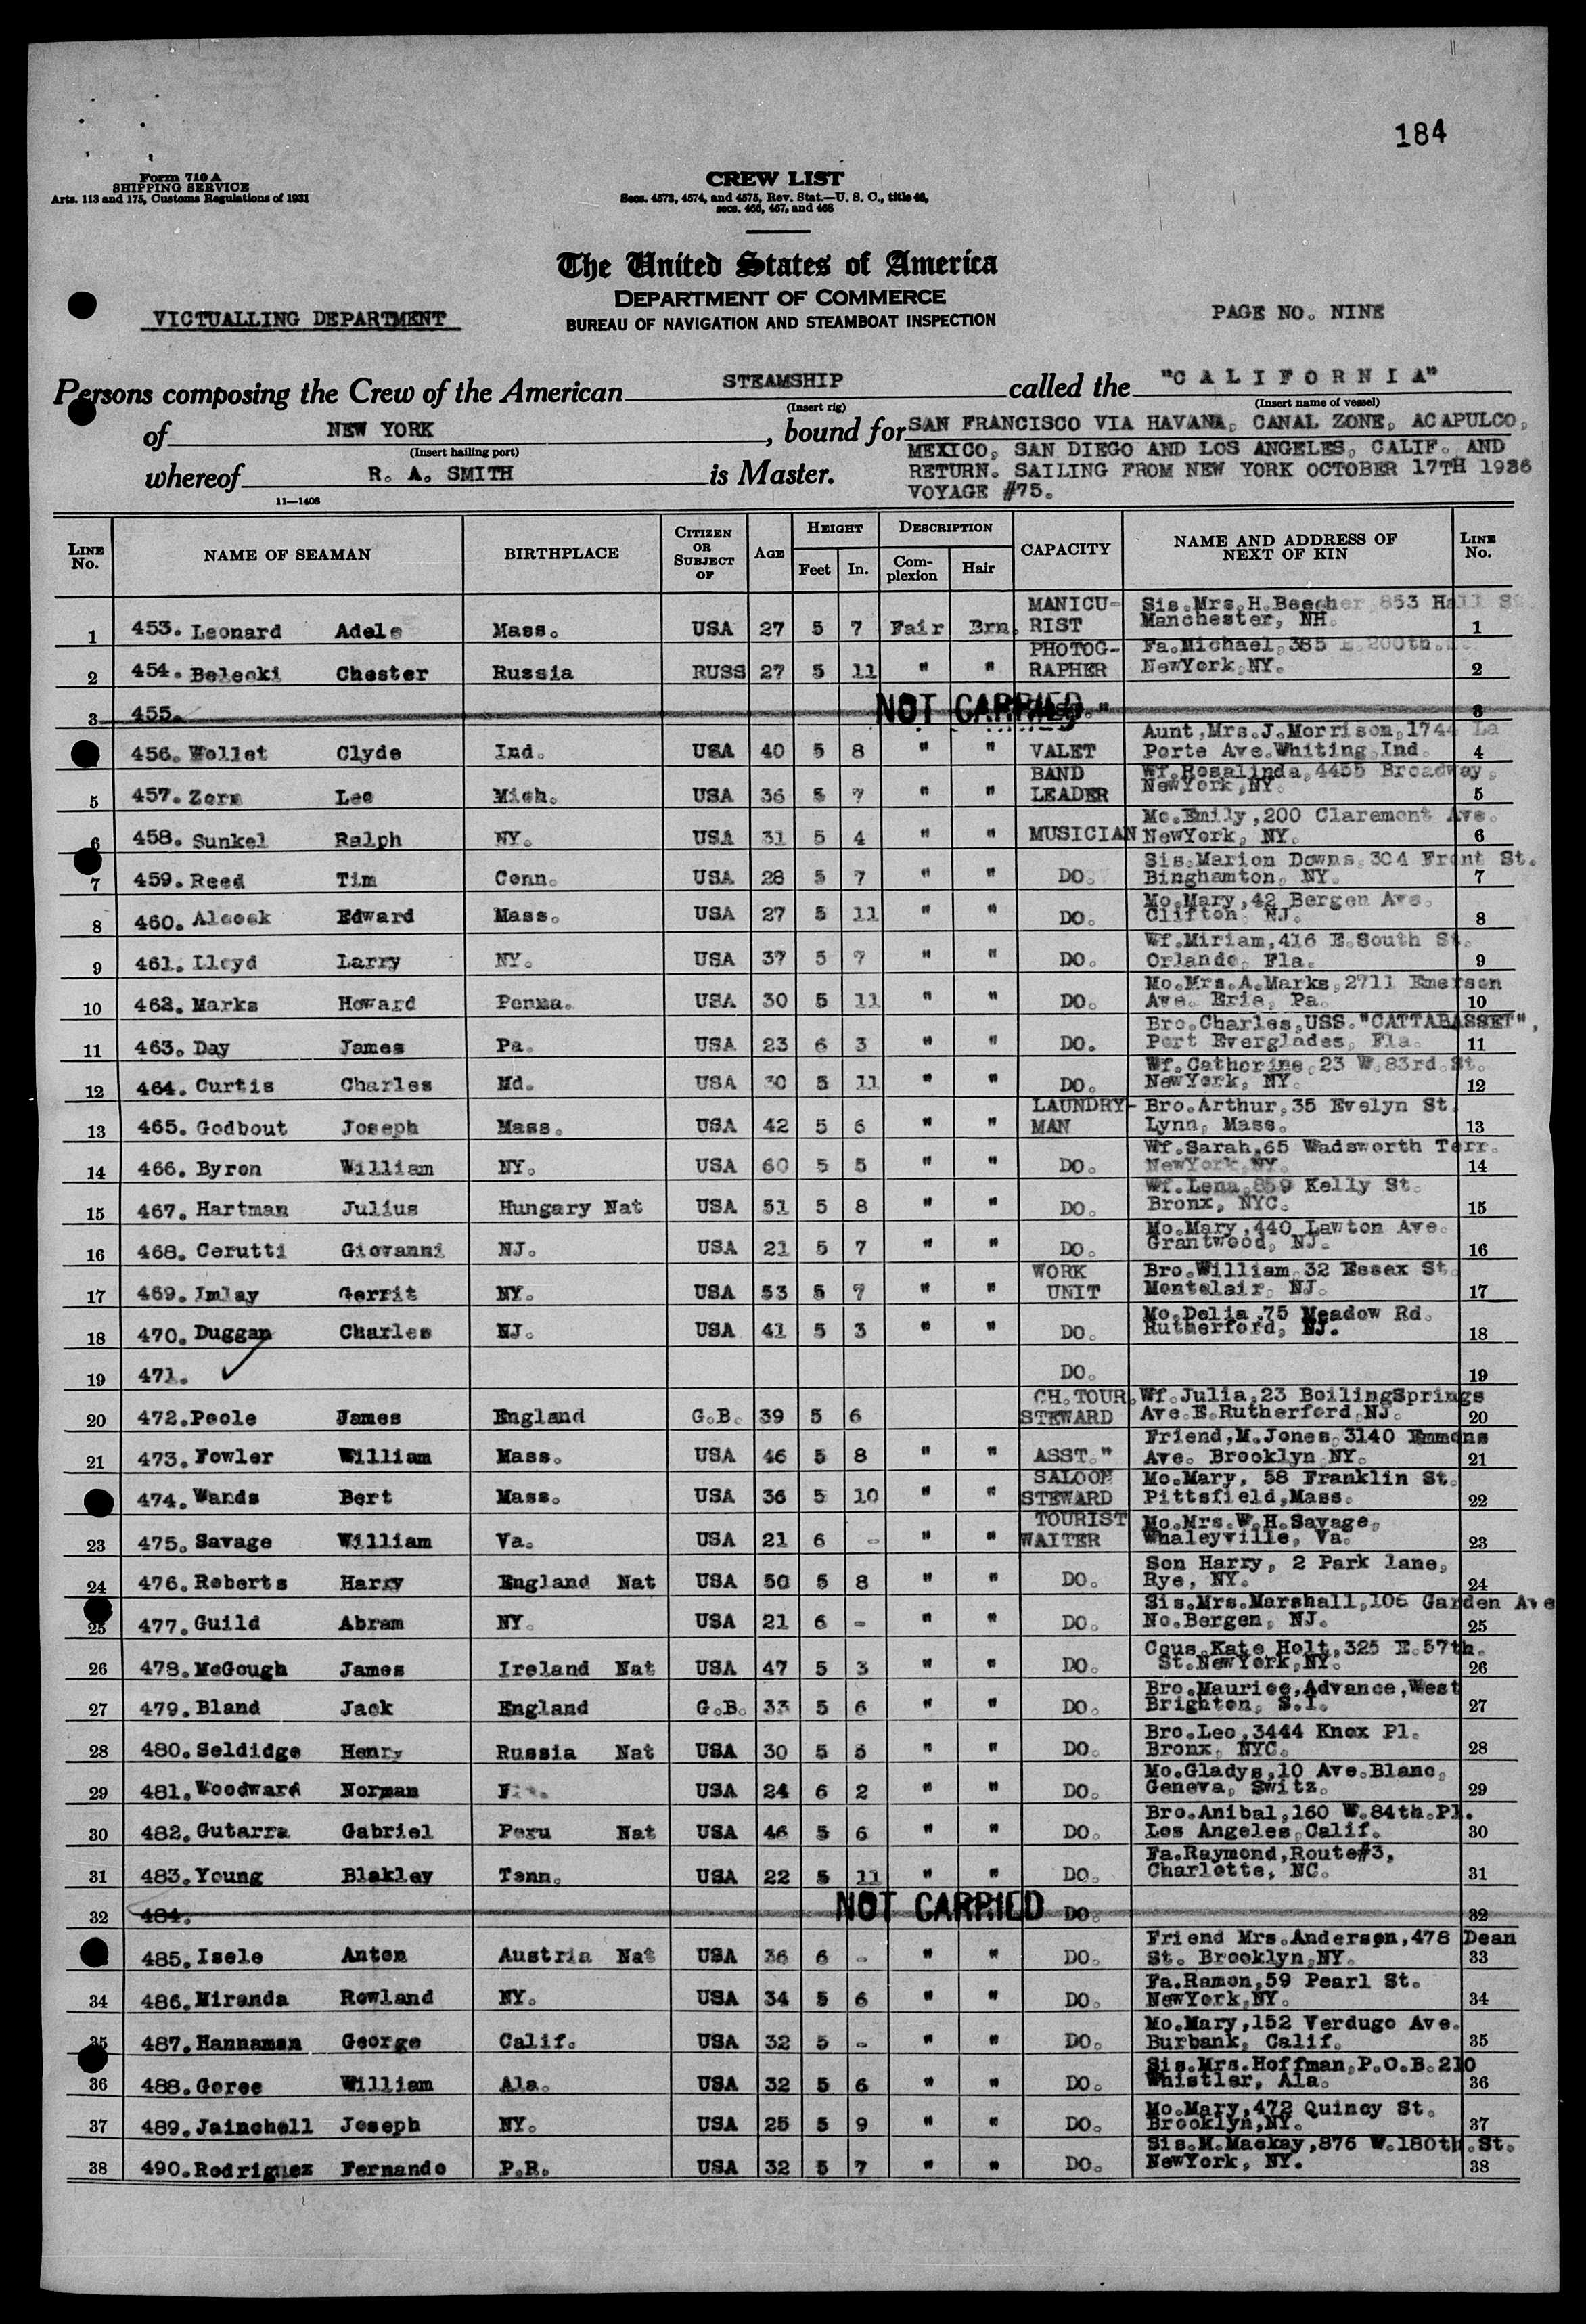 184
Form 710 A
SHIPPING SERVICE
Arts. 113 and 175, Customs Regulations of 1931
CREW LIST
Secs. 4573, 4574, and 4575, Rev. Stat.—U. S. C., title 46,
secs. 466, 467, and 468
The United States of America
DEPARTMENT OF COMMERCE
BUREAU OF NAVIGATION AND STEAMBOAT INSPECTION
VICTUALLING DEPARTMENT
PAGE NO. NINE
Persons composing the Crew of the American STEAMSHIP called the "CALIFORNIA"
(Insert rig) (Insert name of vessel)
of NEW YORK, bound for SAN FRANCISCO VIA HAVANA, CANAL ZONE, ACAPULCO,
(Insert hailing port) MEXICO, SAN DIEGO AND LOS ANGELES, CALIF. AND
whereof R. A. SMITH is Master. RETURN. SAILING FROM NEW YORK OCTOBER 17TH 1936
VOYAGE #75.
11—1408
LINE No. NAME OF SEAMAN BIRTHPLACE CITIZEN OR SUBJECT OF AGE HEIGHT Feet In. DESCRIPTION Complexion Hair CAPACITY NAME AND ADDRESS OF NEXT OF KIN LINE No.
1 453. Leonard Adele Mass. USA 27 5 7 Fair Brn. MANICU-RIST Sis.Mrs.H.Beecher 853 Hall St Manchester, NH. 1
2 454. Belecki Chester Russia RUSS 27 5 11 " " PHOTOG-RAPHER Fa.Michael,385 E.200th. NewYork,NY. 2
3 455. NOT CARRIED " 3
456. Wollet Clyde Ind. USA 40 5 8 " " VALET Aunt,Mrs.J.Morrison,1744 La Porte Ave.Whiting,Ind. 4
5 457. Zorn Lee Mich. USA 36 5 7 " " BAND LEADER Wf.Rosalinda,4455 Broadway, NewYork,NY. 5
6 458. Sunkel Ralph NY. USA 31 5 4 " " MUSICIAN Mo.Emily,200 Claremont Ave. NewYork, NY. 6
7 459. Reed Tim Conn. USA 28 5 7 " " DO. Sis.Marion Downs,304 Front St. Binghamton, NY. 7
8 460. Alcock Edward Mass. USA 27 5 11 " " DO. Mo.Mary,42 Bergen Ave. Clifton, NJ. 8
9 461. Lloyd Larry NY. USA 37 5 7 " " DO. Wf.Miriam,416 E.South St. Orlando, Fla. 9
10 462. Marks Howard Penna. USA 30 5 11 " " DO. Mo.Mrs.A.Marks,2711 Emerson Ave. Erie, Pa. 10
11 463. Day James Pa. USA 23 6 3 " " DO. Bro.Charles,USS."CATTABASSET", Port Everglades, Fla. 11
12 464. Curtis Charles Md. USA 30 5 11 " " DO. Wf.Catherine,23 W.83rd.St. NewYork, NY. 12
13 465. Godbout Joseph Mass. USA 42 5 6 " " LAUNDRY-MAN Bro.Arthur,35 Evelyn St. Lynn, Mass. 13
14 466. Byron William NY. USA 60 5 5 " " DO. Wf.Sarah,65 Wadsworth Terr. NewYork,NY. 14
15 467. Hartman Julius Hungary Nat USA 51 5 8 " " DO. Wf.Lena,859 Kelly St. Bronx, NYC. 15
16 468. Cerutti Giovanni NJ. USA 21 5 7 " " DO. Mo.Mary,440 Lawton Ave. Grantwood, NJ. 16
17 469. Imlay Gerrit NY. USA 53 5 7 " " WORK UNIT Bro.William,32 Essex St. Montclair, NJ. 17
18 470. Duggan Charles NJ. USA 41 5 3 " " DO. Mo.Delia,75 Meadow Rd. Rutherford, NJ. 18
19 471. DO. 19
20 472. Poole James England G.B. 39 5 6 CH.TOUR. STEWARD Wf.Julia,23 BoilingSprings Ave.E.Rutherford,NJ. 20
21 473. Fowler William Mass. USA 46 5 8 " " ASST." Friend,M.Jones,3140 Emmons Ave. Brooklyn,NY. 21
474. Wands Bert Mass. USA 36 5 10 " " SALOON STEWARD Mo.Mary, 58 Franklin St. Pittsfield,Mass. 22
23 475. Savage William Va. USA 21 6 - " " TOURIST WAITER Mo.Mrs.W.H.Savage, Whaleyville, Va. 23
24 476. Roberts Harry England Nat USA 50 5 8 " " DO. Son Harry, 2 Park lane, Rye, NY. 24
25 477. Guild Abram NY. USA 21 6 - " " DO. Sis.Mrs.Marshall,106 Garden Ave No.Bergen, NJ. 25
26 478. McGough James Ireland Nat USA 47 5 3 " " DO. Cous.Kate Holt,325 E.57th. St.NewYork,NY. 26
27 479. Bland Jack England G.B. 33 5 6 " " DO. Bro.Maurice,Advance,West Brighton, S.I. 27
28 480. Seldidge Henry Russia Nat USA 30 5 5 " " DO. Bro.Leo,3444 Knox Pl. Bronx, NYC. 28
29 481. Woodward Norman USA 24 6 2 " " DO. Mo.Gladys,10 Ave.Blanc, Geneva, Switz. 29
30 482. Gutarra Gabriel Peru Nat USA 46 5 6 " " DO. Bro.Anibal,160 W.84th.Pl. Los Angeles,Calif. 30
31 483. Young Blakley Tenn. USA 22 5 11 " " DO. Fa.Raymond,Route#3, Charlotte, NC. 31
32 484. NOT CARRIED DO. 32
485. Isele Anton Austria Nat USA 36 6 - " " DO. Friend Mrs.Anderson,478 Dean St. Brooklyn,NY. 33
34 486. Miranda Rowland NY. USA 34 5 6 " " DO. Fa.Ramon,59 Pearl St. NewYork,NY. 34
35 487. Hannaman George Calif. USA 32 5 - " " DO. Mo.Mary,152 Verdugo Ave. Burbank, Calif. 35
36 488. Goree William Ala. USA 32 5 6 " " DO. Sis.Mrs.Hoffman,P.O.B.210 Whistler, Ala. 36
37 489. Jainchell Joseph NY. USA 25 5 9 " " DO. Mo.Mary,472 Quincy St. Brooklyn,NY. 37
38 490. Rodriguez Fernando P.R. USA 32 5 7 " " DO. Sis.M.Mackay,876 W.180th.St. NewYork, NY. 38